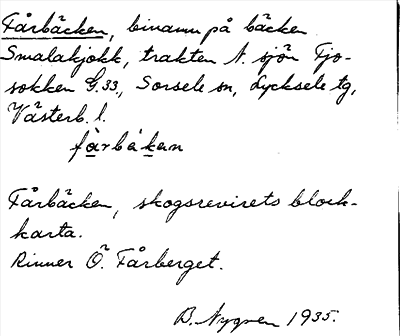 Fårbäcken, binamn på bäcken
Smalakjokk, trakten N. sjön Fjo-
sokken G.33, Sorsele sn, Lycksele tg,
Västerb. l.
fàrbä́ken
Fårbäcken, skogsrevirets block-
karta.
Rinner Ö. Fårberget.
B. Nygren 1935.